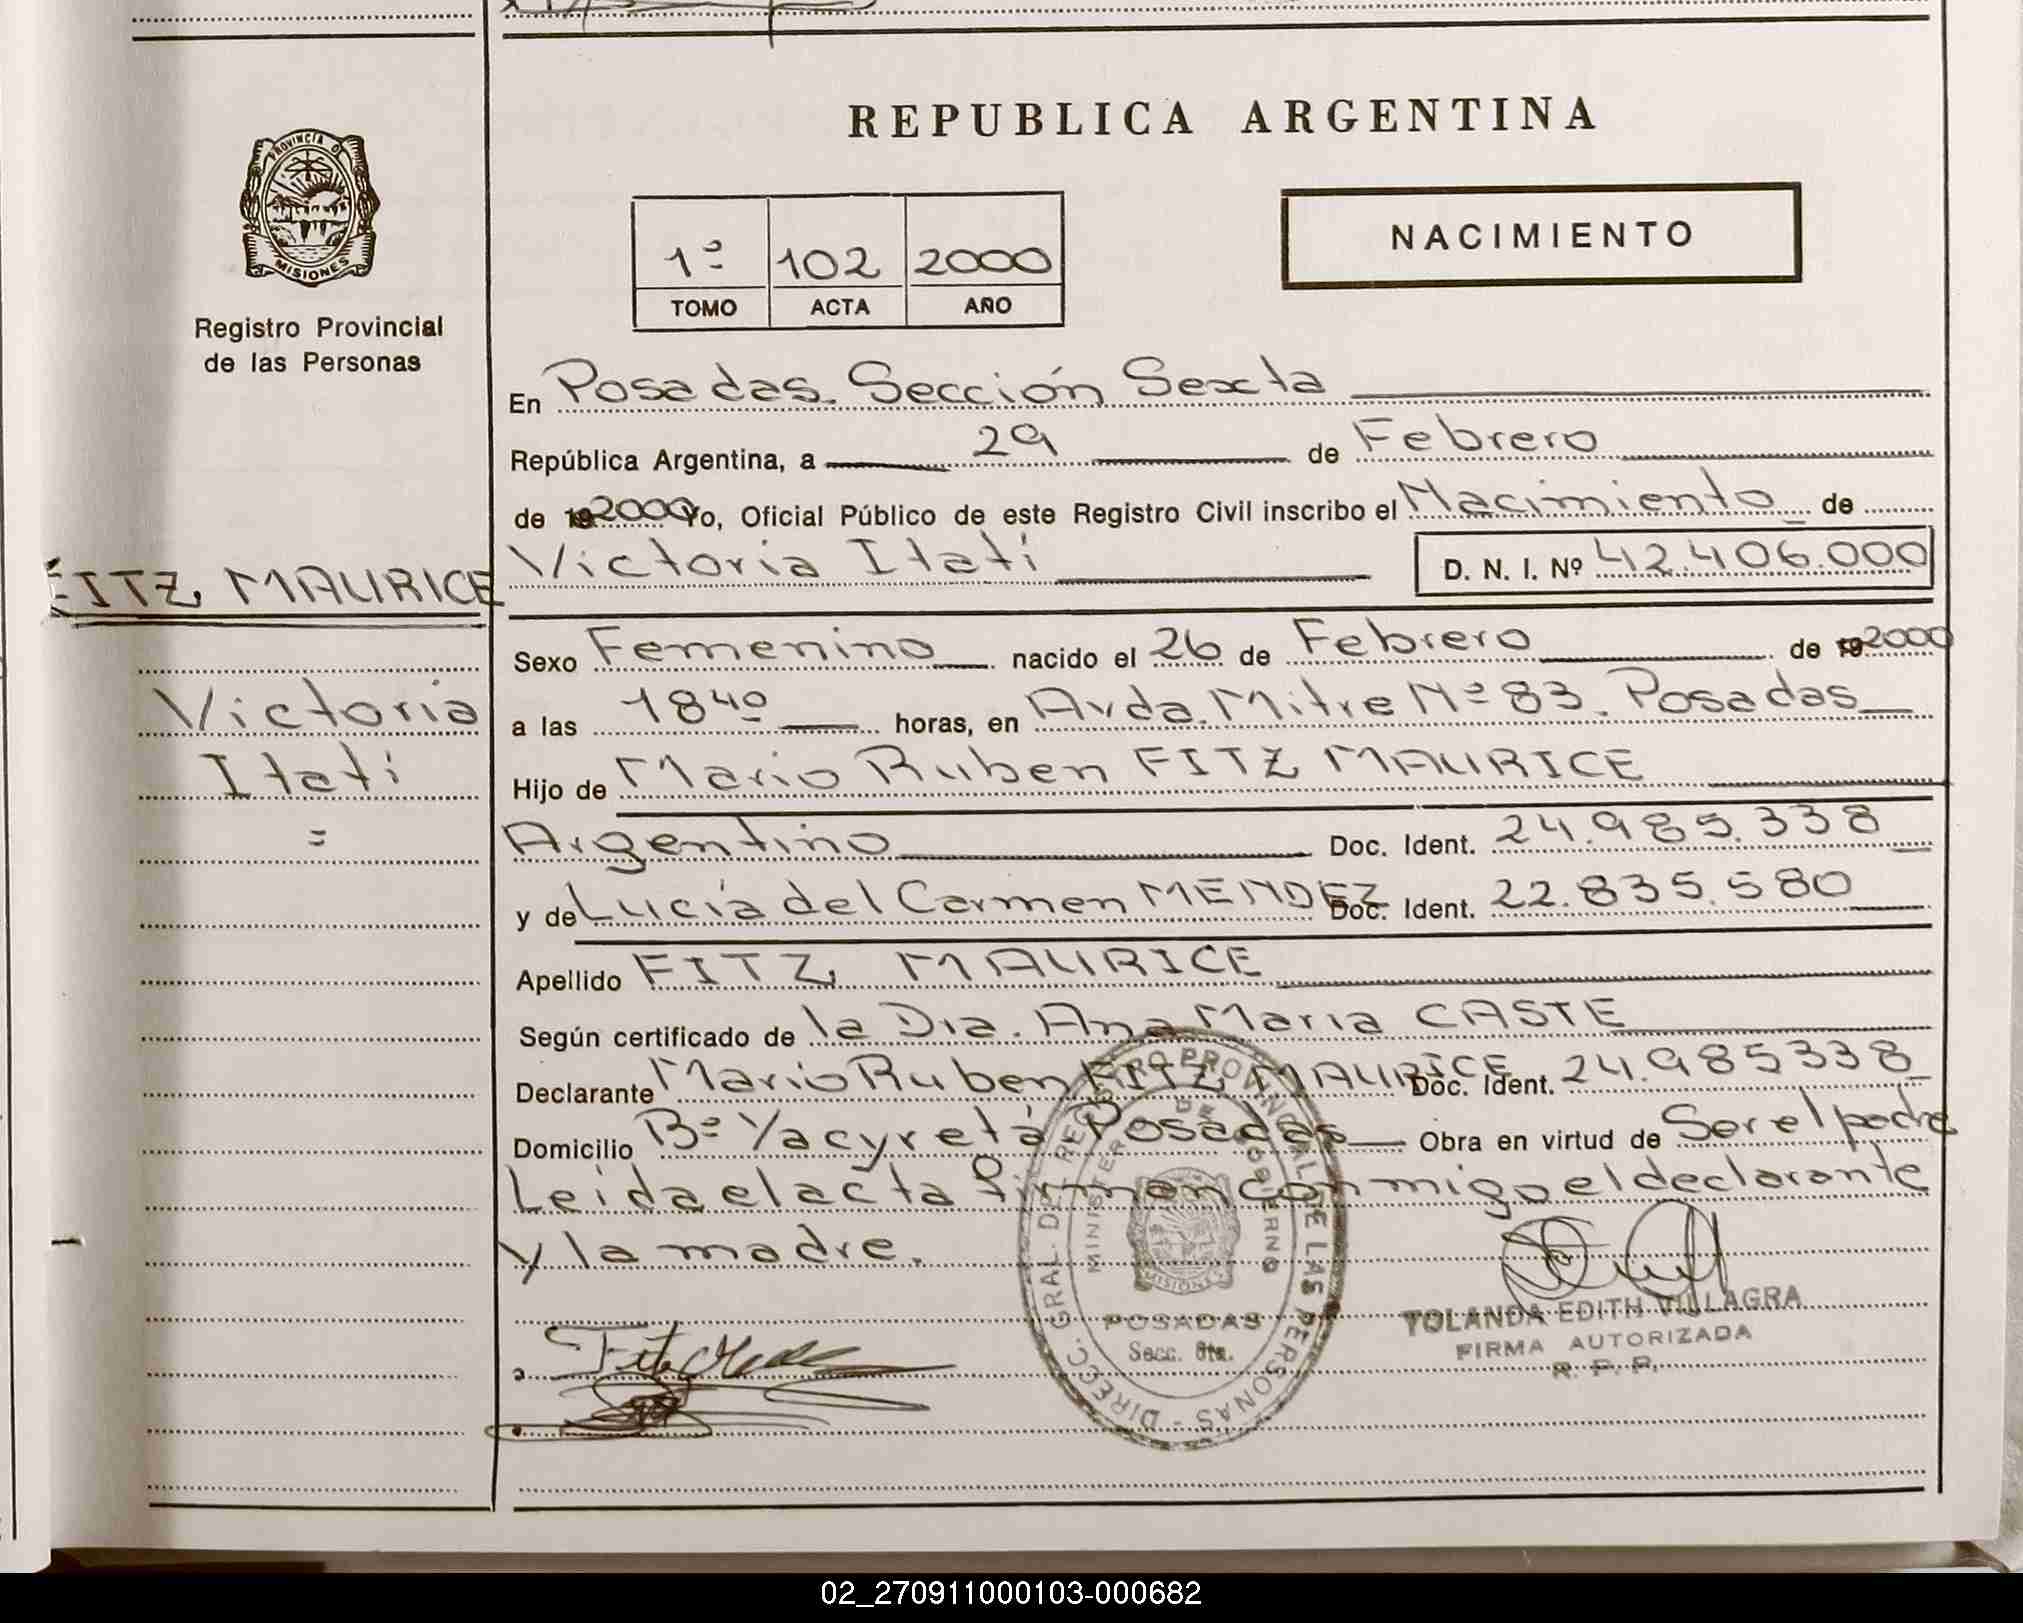 REPUBLICA ARGENTINA
PROVINCIA D
MISIONES
Registro Provincial
de las Personas
1º 102 2000
TOMO ACTA AÑO
NACIMIENTO
En Posadas. Sección Sexta
República Argentina, a 29 de Febrero
de 192000 Yo, Oficial Público de este Registro Civil inscribo el Nacimiento de
Victoria Itatí D. N. I. Nº 42.406.000
FITZ MAURICE
Victoria
Itatí
=
Sexo Femenino nacido el 26 de Febrero de 192000
a las 18⁴⁰ horas, en Avda. Mitre Nº 83. Posadas
Hijo de Mario Ruben FITZ MAURICE
Argentino Doc. Ident. 24.985.338
y de Lucía del Carmen MENDEZ Doc. Ident. 22.835.580
Apellido FITZ MAURICE
Según certificado de la Dra. Ana Maria CASTE
Declarante Mario Ruben FITZ MAURICE Doc. Ident. 24.985338
Domicilio Bº Yacyretá Posadas Obra en virtud de Ser el padre
Leida el acta firman conmigo el declarante
y la madre.
DIRECC. GRAL. DEL REGISTRO PROVINCIAL DE LAS PERSONAS -
MINISTERIO DE GOBIERNO
MISIONES
POSADAS
Secc. 6ta.
YOLANDA EDITH VILLAGRA
FIRMA AUTORIZADA
R. P. P.
02_270911000103-000682